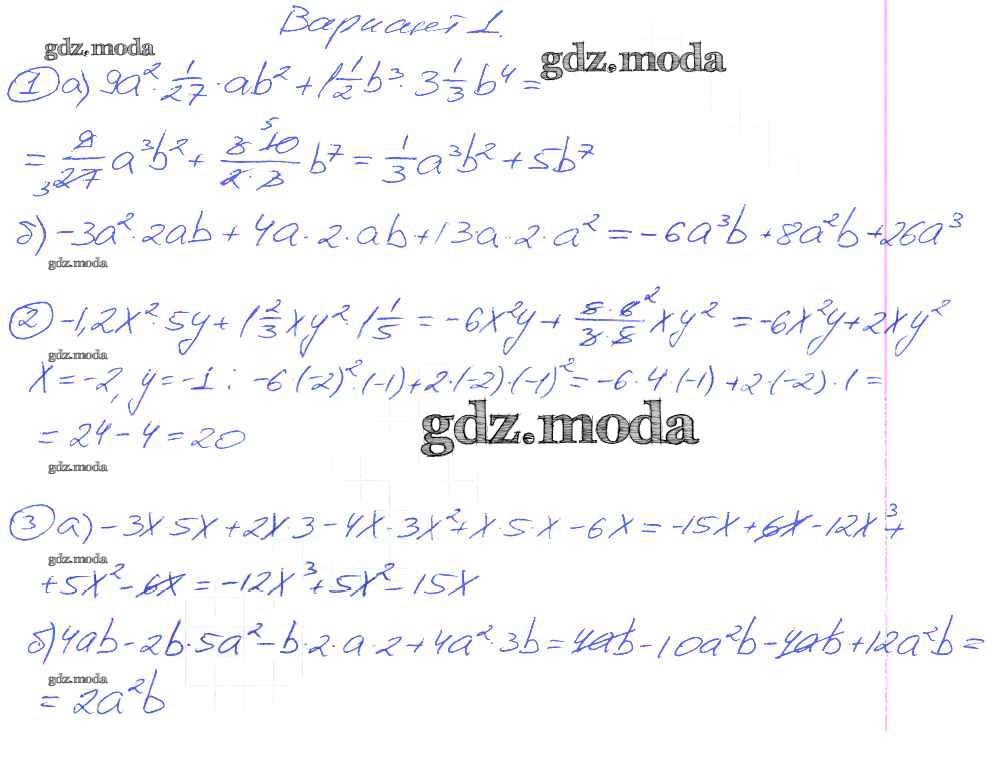 Вариант 1.
gdz.moda
gdz.moda
① а) 9a²·1/27·ab² + 1 1/2 b³·3 1/3 b⁴ =
= 9/27 3 a³b² + 3·10 5/2·3 b⁷ = 1/3 a³b² + 5b⁷
б) -3a²·2ab + 4a·2·ab + 13a·2·a² = -6a³b + 8a²b + 26a³
gdz.moda
② -1,2x²·5y + 1 2/3 xy²·1 1/5 = -6x²y + 5·6 2/3·5 xy² = -6x²y + 2xy²
gdz.moda
x = -2, y = -1: -6·(-2)²·(-1) + 2·(-2)·(-1)² = -6·4·(-1) + 2·(-2)·1 =
gdz.moda
= 24 - 4 = 20
gdz.moda
③ а) -3x·5x + 2x·3 - 4x·3x² + x·5·x - 6x = -15x + 6x - 12x³ +
gdz.moda
+ 5x² - 6x = -12x³ + 5x² - 15x
б) 4ab - 2b·5a² - b·2·a·2 + 4a²·3b = 4ab - 10a²b - 4ab + 12a²b =
gdz.moda
= 2a²b